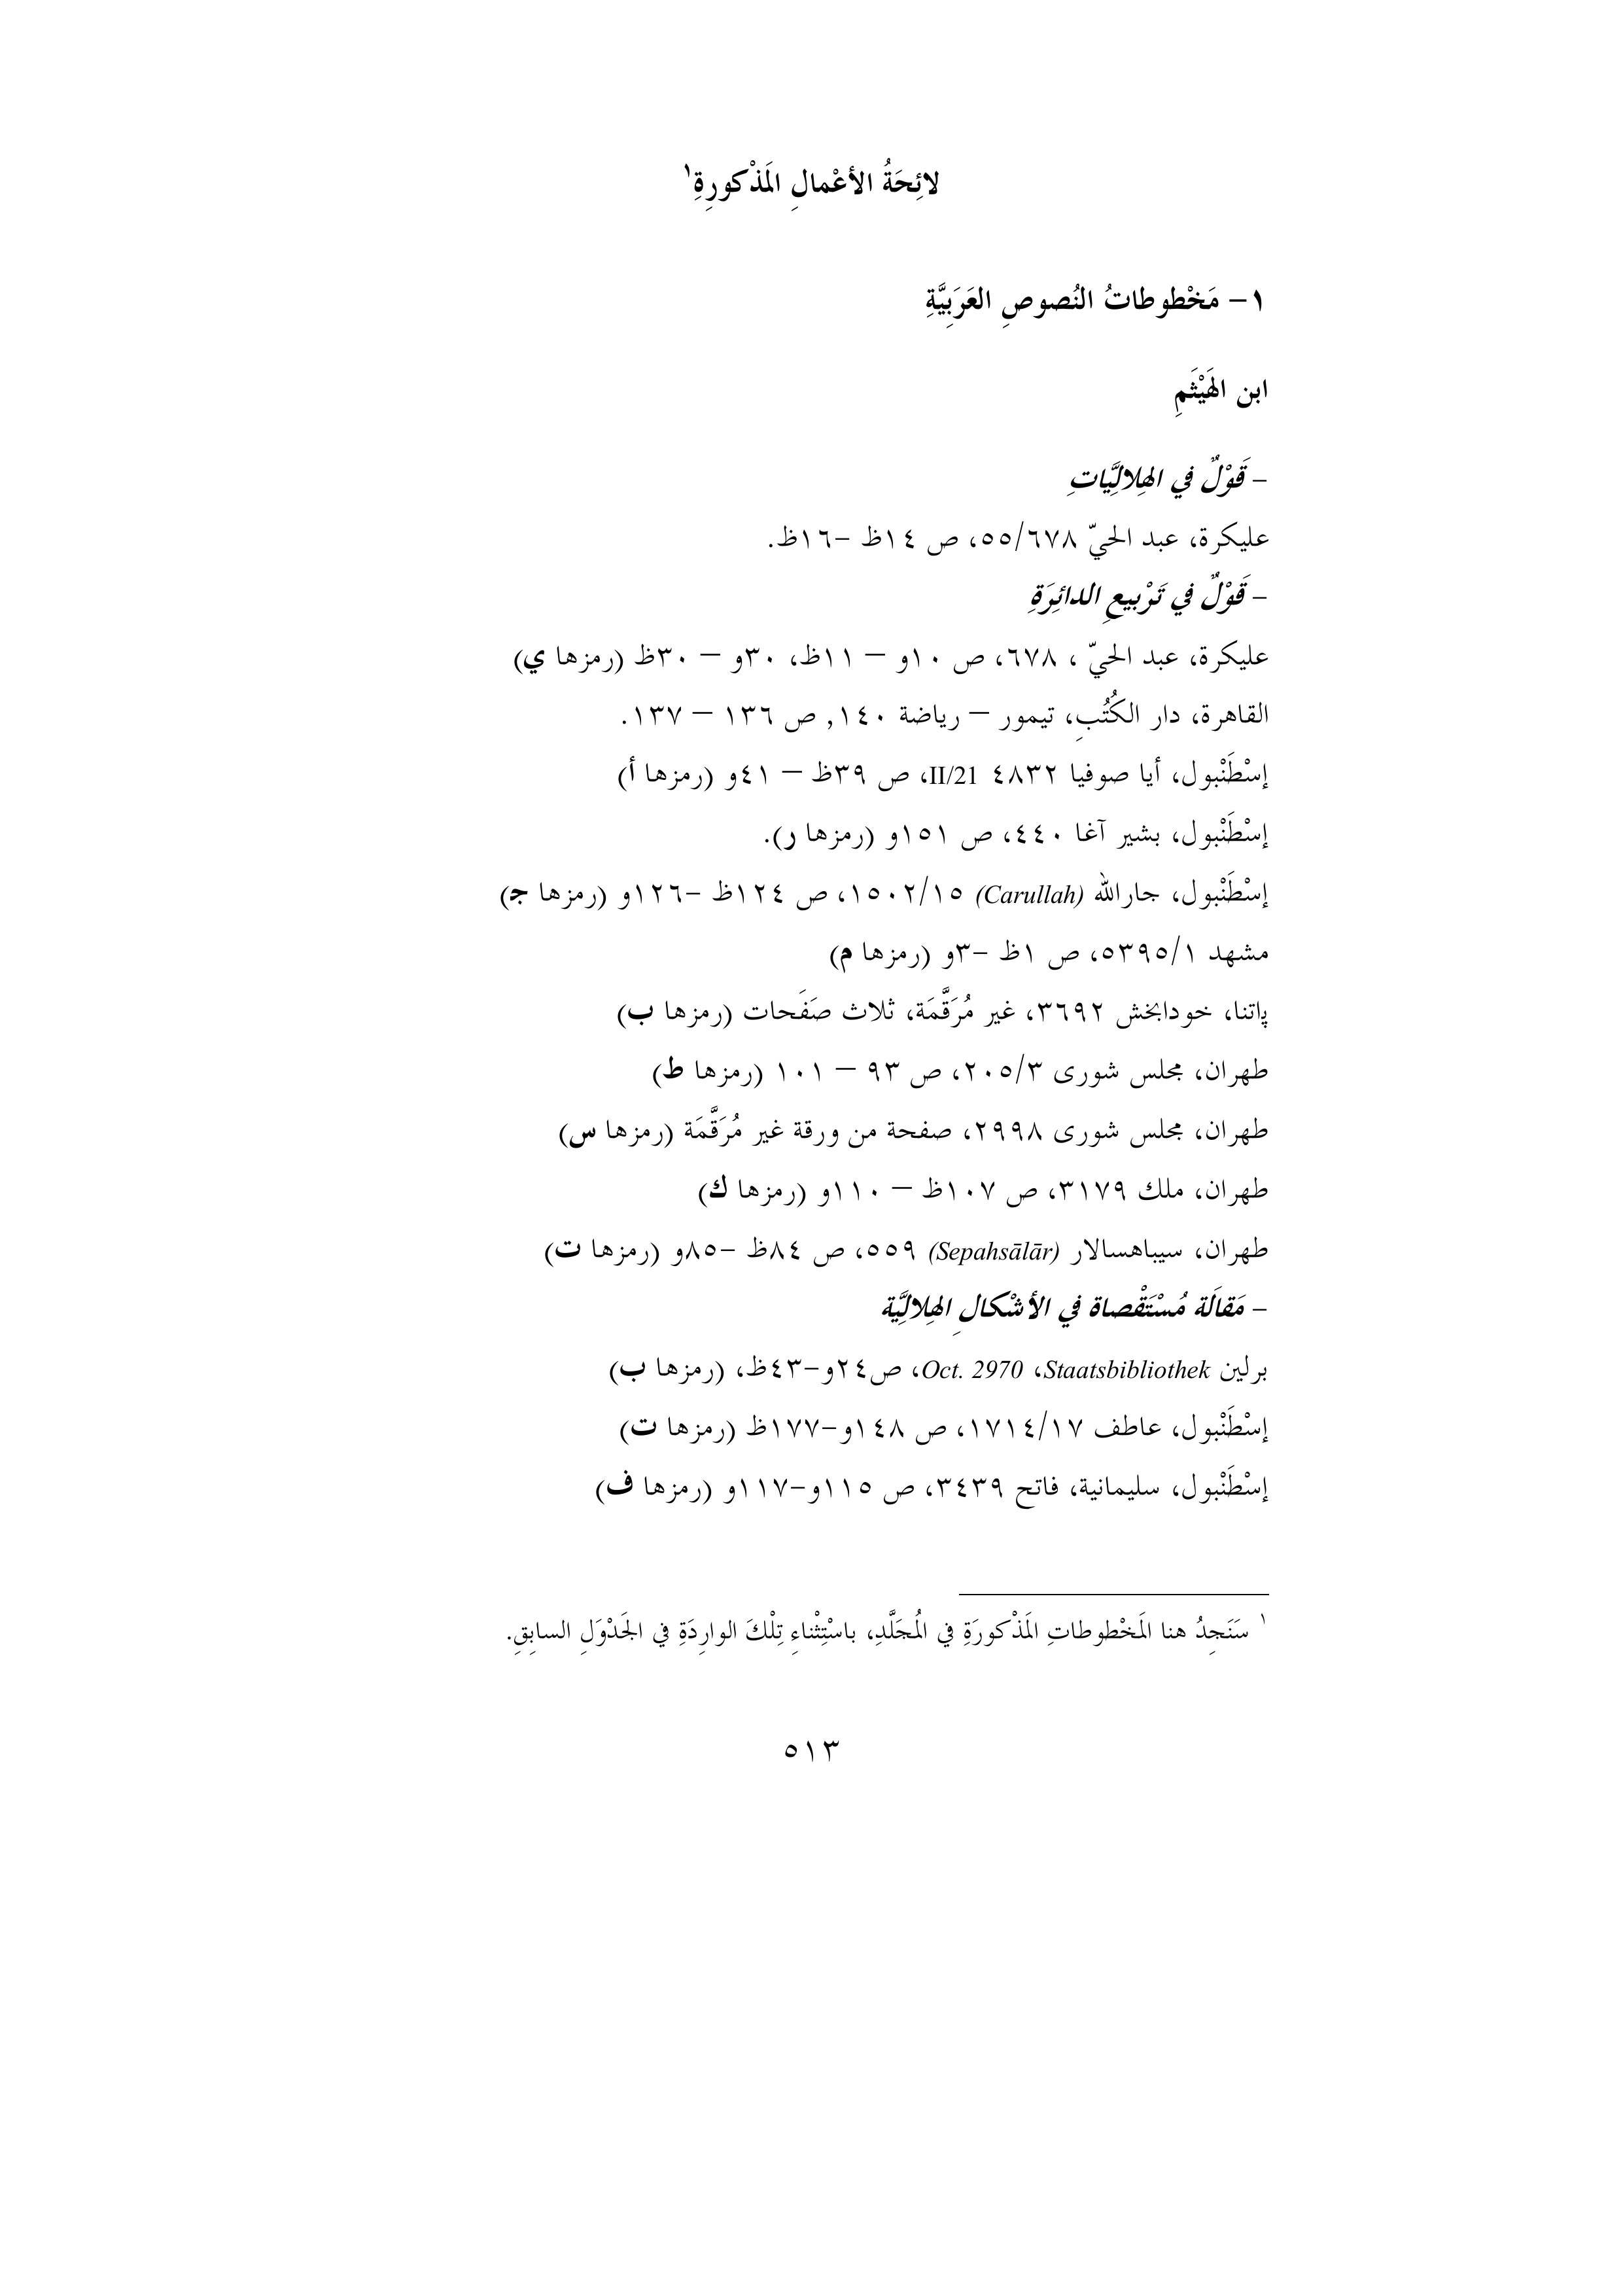 لائِحَةُ الأعْمالِ المَذْكورِةِ١
١- مَخْطوطاتُ النُصوصِ العَرَبِيَّةِ
ابن الهَيْثَمِ
- قَوْلٌ في الهِلالِيَّاتِ
عليكرة، عبد الحيّ ٥٥/٦٧٨، ص ١٤ظ -١٦ظ.
- قَوْلٌ في تَرْبيعِ الدائِرَةِ
عليكرة، عبد الحيّ ، ٦٧٨، ص ١٠و – ١١ظ، ٣٠و – ٣٠ظ (رمزها ي)
القاهرة، دار الكُتُبِ، تيمور – رياضة ١٤٠, ص ١٣٦ – ١٣٧.
إسْطَنْبول، أيا صوفيا ٤٨٣٢ II/21، ص ٣٩ظ – ٤١و (رمزها أ)
إسْطَنْبول، بشير آغا ٤٤٠، ص ١٥١و (رمزها ر).
إسْطَنْبول، جارالله (Carullah) ١٥٠٢/١٥، ص ١٢٤ظ -١٢٦و (رمزها ج)
مشهد ٥٣٩٥/١، ص ١ظ -٣و (رمزها م)
پاتنا، خودابخش ٣٦٩٢، غير مُرَقَّمَة، ثلاث صَفَحات (رمزها ب)
طهران، مجلس شورى ٢٠٥/٣، ص ٩٣ – ١٠١ (رمزها ط)
طهران، مجلس شورى ٢٩٩٨، صفحة من ورقة غير مُرَقَّمَة (رمزها س)
طهران، ملك ٣١٧٩، ص ١٠٧ظ – ١١٠و (رمزها ك)
طهران، سيباهسالار (Sepahsālār) ٥٥٩، ص ٨٤ظ -٨٥و (رمزها ت)
- مَقالَة مُسْتَقْصاة في الأشْكالِ الهِلالِيَّة
برلين Staatsbibliothek، Oct. 2970، ص٢٤و-٤٣ظ، (رمزها ب)
إسْطَنْبول، عاطف ١٧١٤/١٧، ص ١٤٨و-١٧٧ظ (رمزها ت)
إسْطَنْبول، سليمانية، فاتح ٣٤٣٩، ص ١١٥و-١١٧و (رمزها ف)
١ سَنَجِدُ هنا المَخْطوطاتِ المَذْكورَةِ في المُجَلَّدِ، باسْتِثْناءِ تِلْكَ الوارِدَةِ في الجَدْوَلِ السابِقِ.
٥١٣